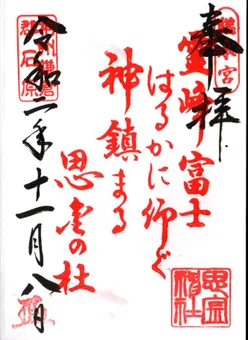 奉拝
霊峰富士
はるかに仰ぐ
神鎮まる
思金の杜
令和二年十一月八日
思金神社